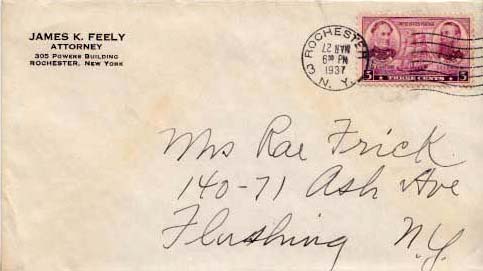 JAMES K. FEELY
ATTORNEY
305 POWERS BUILDING
ROCHESTER, NEW YORK
ROCHESTER
27 MAR
6 30 PM
1937
3 N. Y.
UNITED STATES POSTAGE
3 THREE CENTS 3
Mrs Rae Frick
140-71 Ash Ave
Flushing N.Y.